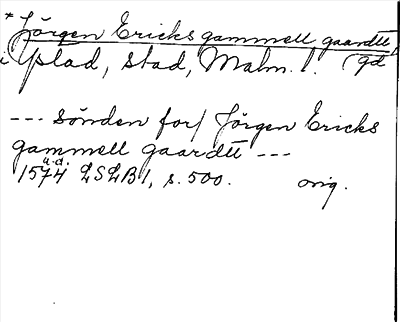 * Jörgen Ericks gammell gaardtt
i Ystad, stad, Malm. l. (gd)
--- sönden for/ Jörgen Ericks
gammell gaardtt ---
a.d.
1574 LSLB 1, s. 500. orig.